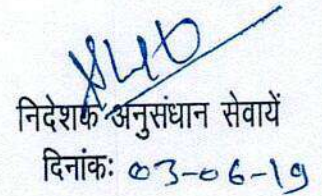 निदेशक अनुसंधान सेवायें
दिनांकः 03-06-19